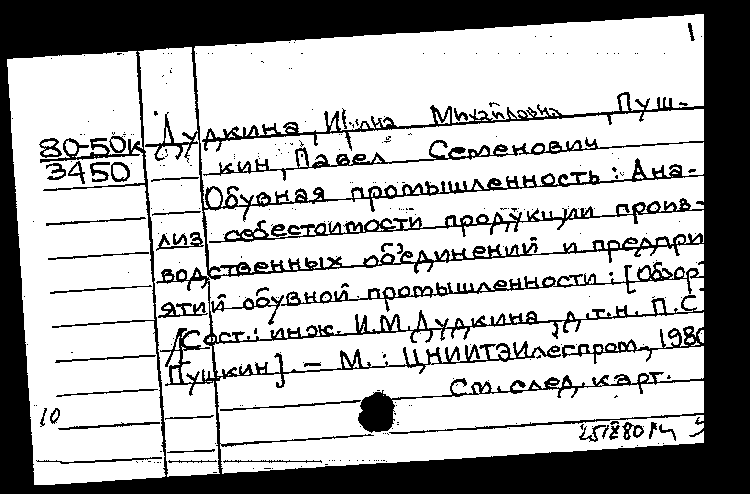 1
80-50к Дудкина, Ирина Михайловна, Пуш-
3450 кин, Павел Семенович
Обувная промышленность: Ана-
лиз себестоимости продукции произ-
водственных объединений и предпри
ятий обувной промышленности: [Обзор
/Сост.: инж. И.М. Дудкина, д.т.н. П.С.
Пушкин]. – М.: ЦНИИТЭИлегпром, 1980
См. след. карт.
10